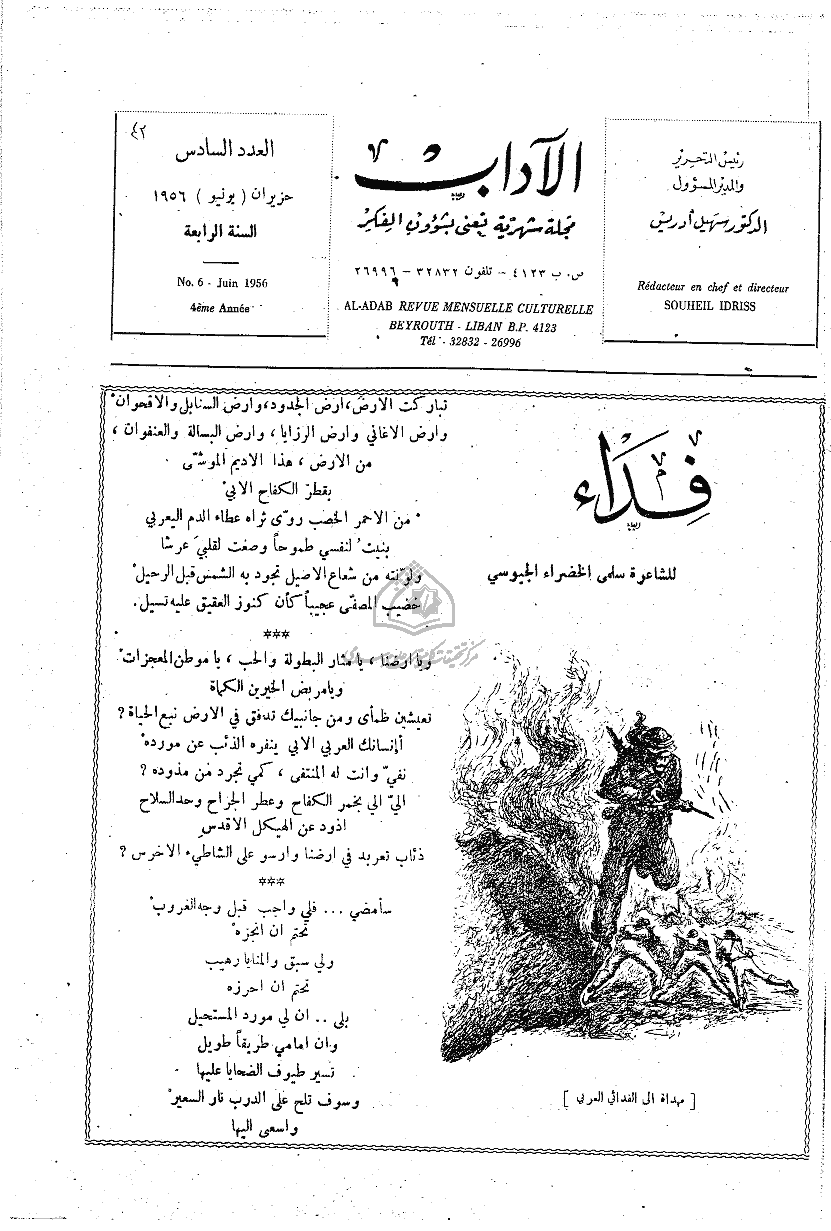 رئيس التحرير
والمدير المسؤول
الدكتور سهيل ادريس
Rédacteur en chef et directeur
SOUHEIL IDRISS
الآداب
مجلة شهرية تعنى بشؤون الفكر
ص. ب ٤١٢٣ - تلفون ٣٢٨٣٢ - ٢٦٩٩٦
AL-ADAB REVUE MENSUELLE CULTURELLE
BEYROUTH - LIBAN B.P. 4123
Tél - 32832 - 26996
٤٢
العدد السادس
حزيران ( يونيو ) ١٩٥٦
السنة الرابعة
No. 6 - Juin 1956
4ème Année
فداء
للشاعرة سلمى الخضراء الجيوسي
[ مهداة الى الفدائي العربي ]
تباركت الارض، ارض الجدود، وارض السنابل والاقحوانْ
وارض الاغاني وارض الرزايا، وارض البسالة والعنفوان،
من الارض، هذا الاديم الموشّى
بقطر الكفاح الابيْ
من الاحمر الخصب روّى ثراه عطاء الدم اليعربي
بنيتُ لنفسي طموحاً وصغت لقلبيَ عرشا
ولوّنته من شعاع الاصيل تجود به الشمس قبل الرحيلْ
خضيب المصفّى عجيباً كأن كنوز العقيق عليه تسيل.
***
ويا ارضنا، يا مثار البطولة والحب، يا موطن المعجزاتْ
ويا مربض الخيرين الكماة
تعيشين ظمأى ومن جانبيك تدفق في الارض نبع الحياة؟
أإنسانك العربي الابي ينفره الذئب عن موردهْ
نفيّ وانت له المنتفى، كمي تجرد من مذوده؟
اليّ الي بخمر الكفاح وعطر الجراح وحد السلاح
اذود عن الهيكل الاقدس
ذئاب تعربد في ارضنا وارسو على الشاطيء الاخرس؟
***
سأمضي ... فلي واجب قبل وجه الغروبْ
تحتم ان انجزهْ
ولي سبق والمنايا رهيب
تحتم ان احرزه
بلى .. ان لي مورد المستحيل
وان امامي طريقاً طويل
تسير طيوف الضحايا عليها
وسوف تلح على الدرب نار السعيرْ
واسعى اليها